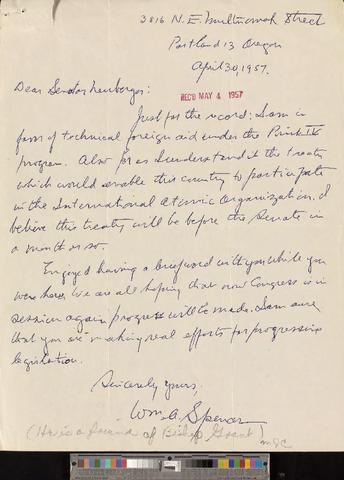 3816 N.E. Multnomah Street
Portland 13 Oregon
April 30, 1957.
Dear Senator Neuberger:
REC'D MAY 4 1957
Just for the record: I am in
favor of technical foreign aid under the Point IV
program. Also for as I understand it the treaty
which would enable this country to participate
in the International Atomic Organization. I
believe this treaty will be before the Senate in
a month or so.
Enjoyed having a brief word with you while you
were here. We are all hoping that now Congress is in
session again progress will be made. I am sure
that you are making real efforts for progressive
legislation.
Sincerely yours,
Wm. G. Spencer
(He is a friend of Bishop Grant)